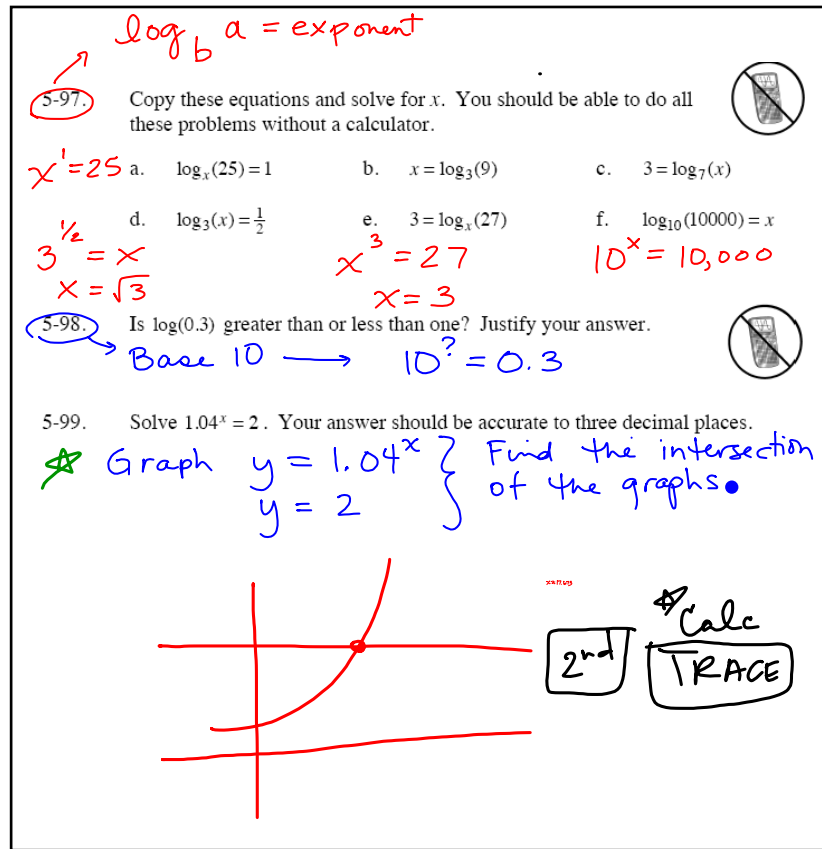 log_b a = exponent
5-97. Copy these equations and solve for x. You should be able to do all
these problems without a calculator.
x^1 = 25 a. log_x(25) = 1 b. x = log_3(9) c. 3 = log_7(x)
d. log_3(x) = 1/2 e. 3 = log_x(27) f. log_10(10000) = x
3^1/2 = x x^3 = 27 10^x = 10,000
x = √3 x = 3
5-98. Is log(0.3) greater than or less than one? Justify your answer.
Base 10 → 10^? = 0.3
5-99. Solve 1.04^x = 2. Your answer should be accurate to three decimal places.
☆ Graph y = 1.04^x } Find the intersection
y = 2 of the graphs.
☆ Calc
2nd TRACE